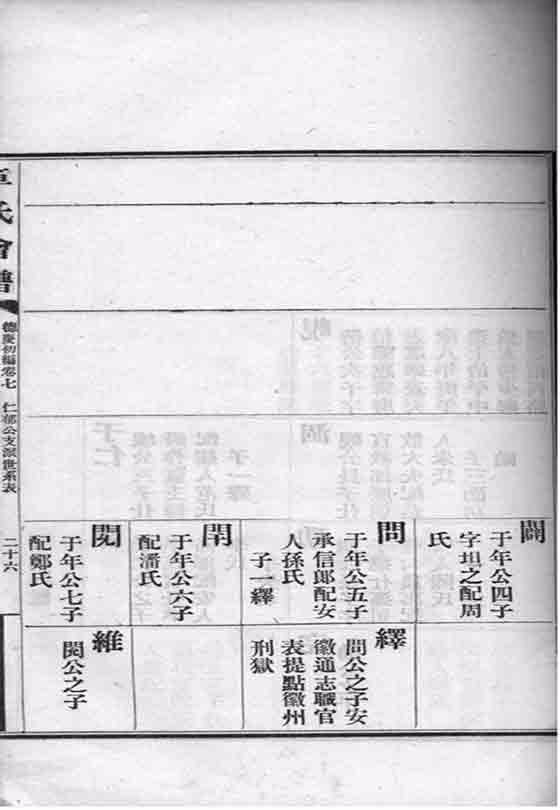 于年公四子
字坦之配周
氏
問
于年公五子
承信郎配安
人孫氏
子一繹
于年公六子
配潘氏
于年公七子
配鄭氏
繹
問公之子安
徽通志職官
表提點徽州
刑獄
維
公之子
章氏會譜
德慶初編卷七 仁郁公支派世系表 二十六